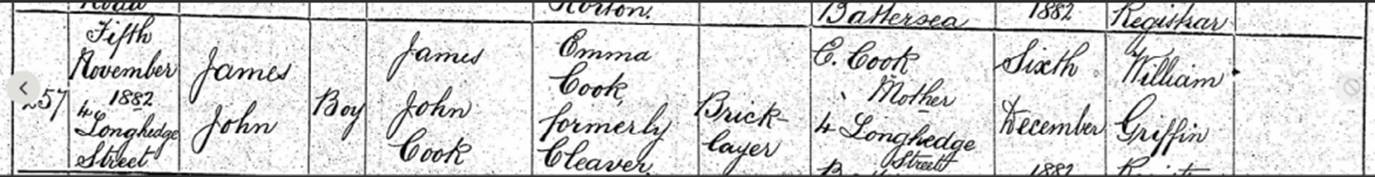 Road
Norton.
Battersea
1882
Registrar
257
Fifth
November
1882
4
Longhedge
Street
James
John
Boy
James
John
Cook
Emma
Cook,
formerly
Cleaver
Brick-
layer
E. Cook
Mother
4 Longhedge
Street
Sixth
December
1882
William
Griffin